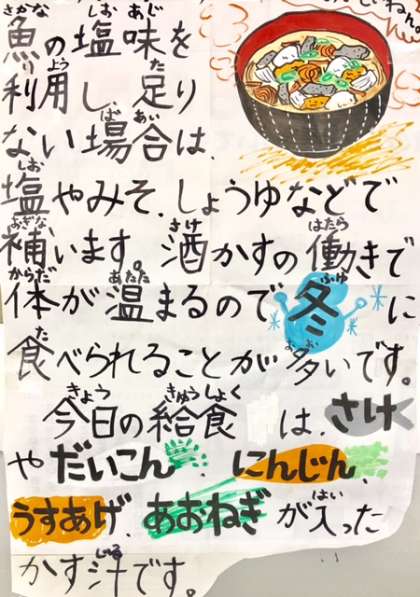 魚の塩味を
利用し、足り
ない場合は、
塩やみそ、しょうゆなどで
補います。酒かすの働きで
体が温まるので冬に
食べられることが多いです。
今日の給食は、さけ
やだいこん、にんじん、
うすあげ、あおねぎが入った
かす汁です。